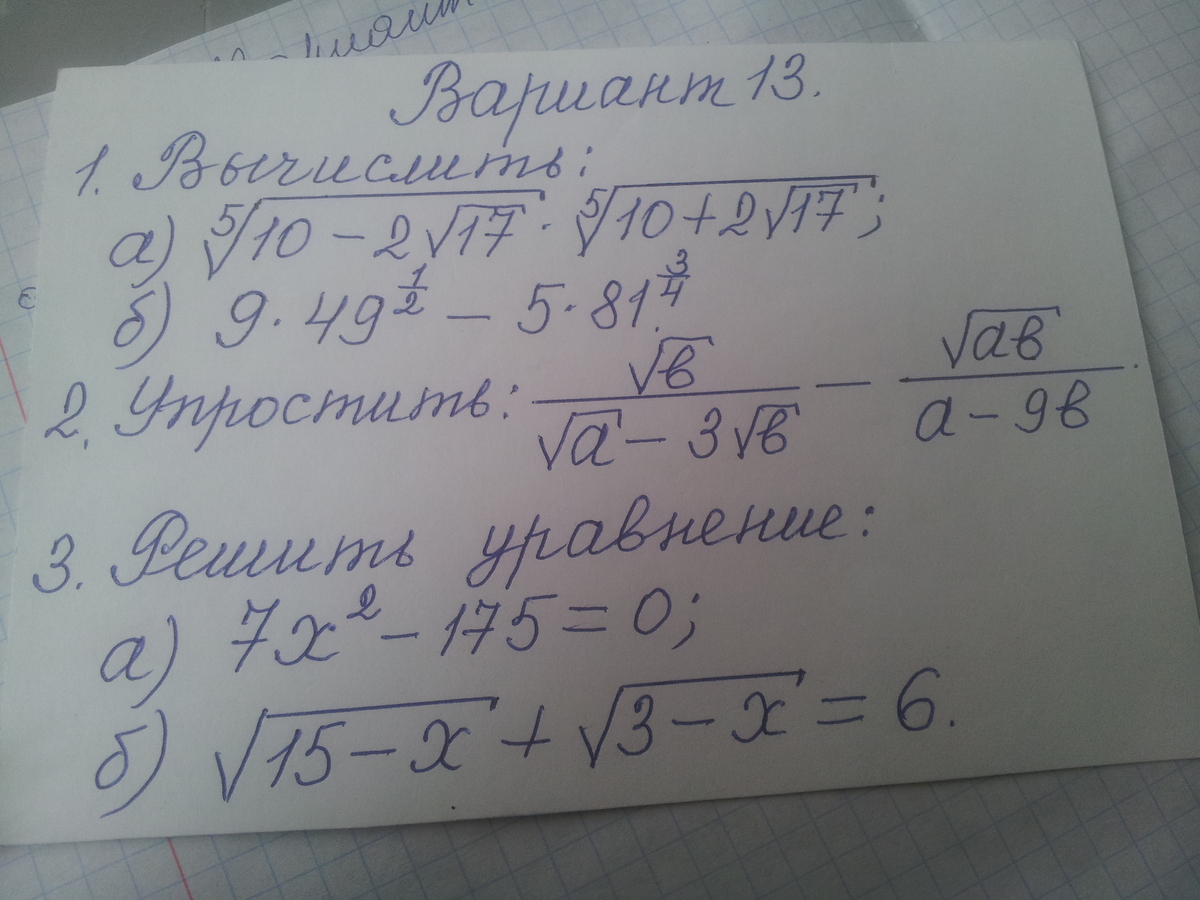 Вариант 13.
1. Вычислить:
а) ⁵√(10 – 2√17) · ⁵√(10 + 2√17);
б) 9 · 49^(1/2) – 5 · 81^(3/4).
2. Упростить: √в/(√а – 3√в) – √ав/(а – 9в).
3. Решить уравнение:
а) 7x² – 175 = 0;
б) √(15 – x) + √(3 – x) = 6.